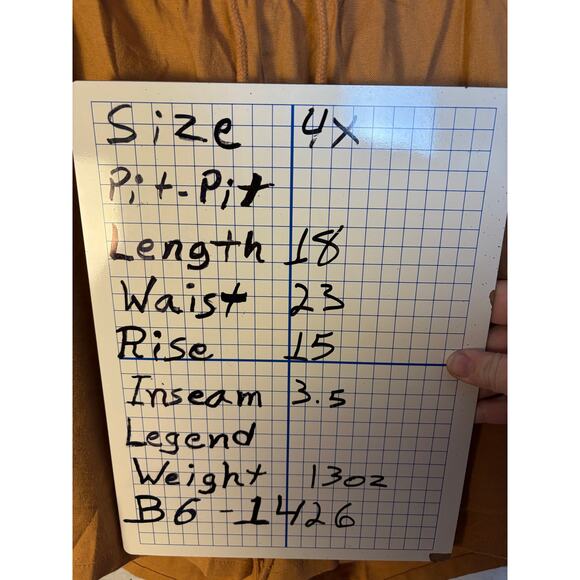 Size 4X
Pit-Pit
Length 18
Waist 23
Rise 15
Inseam 3.5
Legend
Weight 13oz
B6-1426